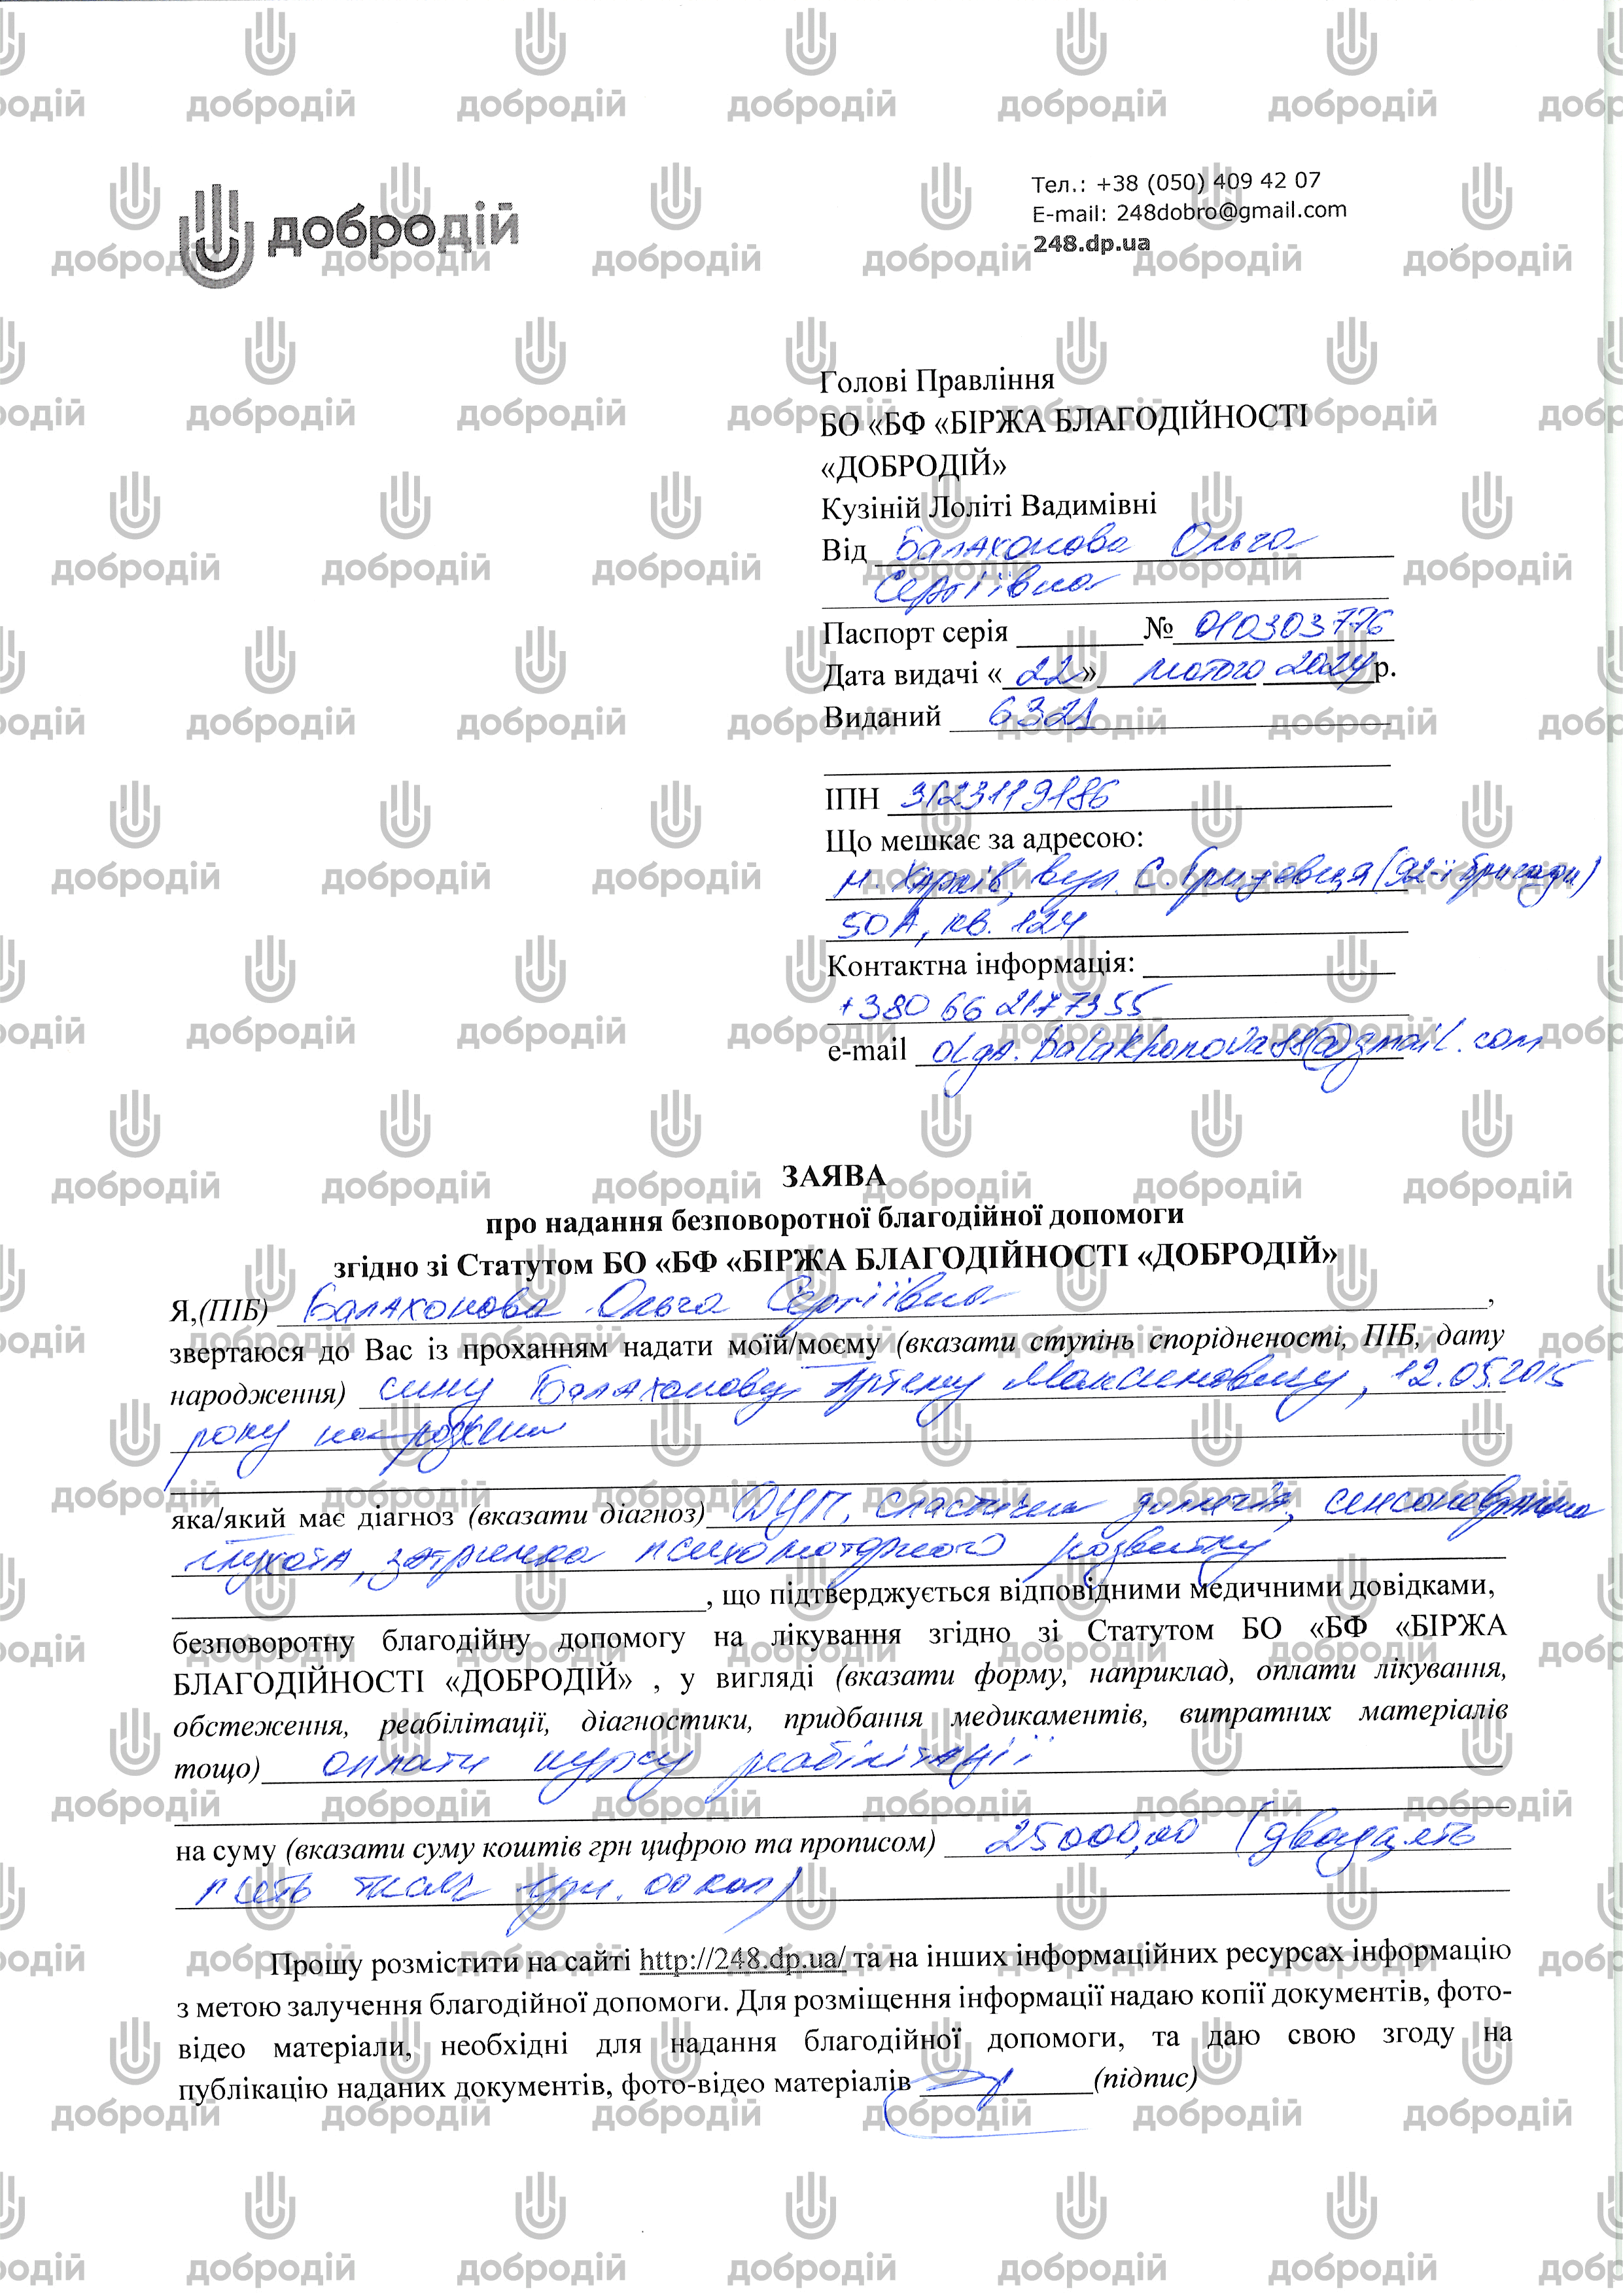 добродій
Тел.: +38 (050) 409 42 07
E-mail: 248dobro@gmail.com
248.dp.ua
Голові Правління
БО «БФ «БІРЖА БЛАГОДІЙНОСТІ
«ДОБРОДІЙ»
Кузіній Лоліті Вадимівні
Від Балахонова Ольга
Сергіївна
Паспорт серія № 010303776
Дата видачі «22» лютого 2024 р.
Виданий 6321
ІПН 3123119186
Що мешкає за адресою:
м. Харків, вул. С. Грицевця (92-ї бригади)
50А, кв. 124
Контактна інформація:
+380 66 2177355
e-mail olga.balakhonova88@gmail.com
ЗАЯВА
про надання безповоротної благодійної допомоги
згідно зі Статутом БО «БФ «БІРЖА БЛАГОДІЙНОСТІ «ДОБРОДІЙ»
Я,(ПІБ) Балахонова Ольга Сергіївна,
звертаюся до Вас із проханням надати моїй/моєму (вказати ступінь спорідненості, ПІБ, дату
народження) сину Балахонову Артему Максимовичу, 12.05.2015
року народження
яка/який має діагноз (вказати діагноз) ДЦП, спастична диплегія, сенсоневральна
глухота, затримка психомоторного розвитку
, що підтверджується відповідними медичними довідками,
безповоротну благодійну допомогу на лікування згідно зі Статутом БО «БФ «БІРЖА
БЛАГОДІЙНОСТІ «ДОБРОДІЙ» , у вигляді (вказати форму, наприклад, оплати лікування,
обстеження, реабілітації, діагностики, придбання медикаментів, витратних матеріалів
тощо) оплати курсу реабілітації
на суму (вказати суму коштів грн цифрою та прописом) 25000,00 (двадцять
п'ять тисяч грн. 00 коп)
Прошу розмістити на сайті http://248.dp.ua/ та на інших інформаційних ресурсах інформацію
з метою залучення благодійної допомоги. Для розміщення інформації надаю копії документів, фото-
відео матеріали, необхідні для надання благодійної допомоги, та даю свою згоду на
публікацію наданих документів, фото-відео матеріалів (підпис)